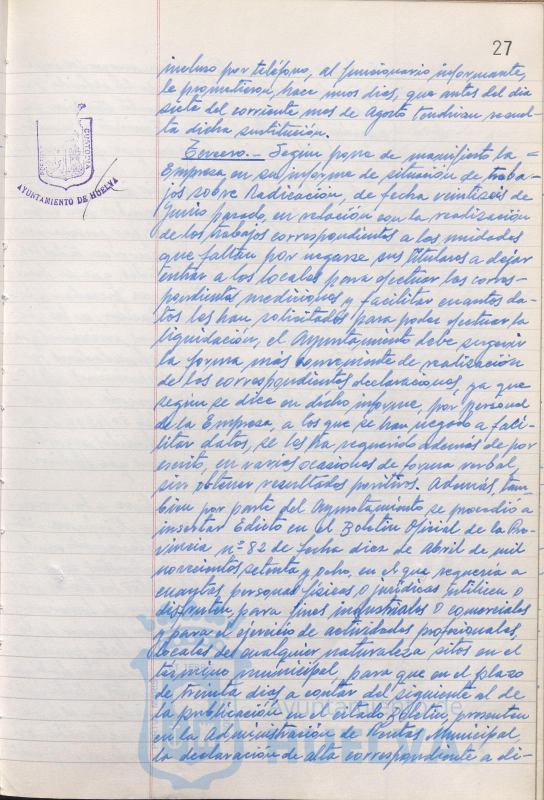 27
incluso por teléfono, al funcionario informante,
le prometieron, hace unos días, que antes del día
siete del corriente mes de Agosto tendrían resuel-
ta dicha sustitución.
Tercero.— Según pone de manifiesto la =
Empresa en su informe de situación de traba-
jos sobre Radicación, de fecha veintiseis de
Junio pasado, en relación con la realización
de los trabajos correspondientes a las unidades
que faltan por negarse sus titulares a dejar
entrar a los locales para efectuar las corres-
pondientes mediciones y facilitar cuantos da-
tos les han solicitados para poder efectuar la
liquidación, el Ayuntamiento debe sugerir
la forma más conveniente de realización
de los correspondientes declaraciones, ya que
según se dice en dicho informe, por personal
de la Empresa, a los que se han negado a faci-
litar datos, se les ha requerido además de por
escrito, en varias ocasiones de forma verbal,
sin obtener resultados positivos. Además, tam
bien por parte del Ayuntamiento se procedió a
insertar Edicto en el Boletín Oficial de la Pro-
vincia nº 82 de fecha diez de Abril de mil
novecientos setenta y ocho, en el que requería a
cuantas personas físicas o jurídicas utilicen o
disfruten, para fines industriales o comerciales
y para el ejercicio de actividades profesionales,
locales de cualquier naturaleza sitos en el
termino municipal, para que en el plazo
de treinta días a contar del siguiente al de
la publicación en el citado Boletín, presenten
en la Administración de Rentas Municipal,
la declaración de alta correspondiente a di-
CUSTODIA
AYUNTAMIENTO DE HUELVA
Ayuntamiento de
HUELVA